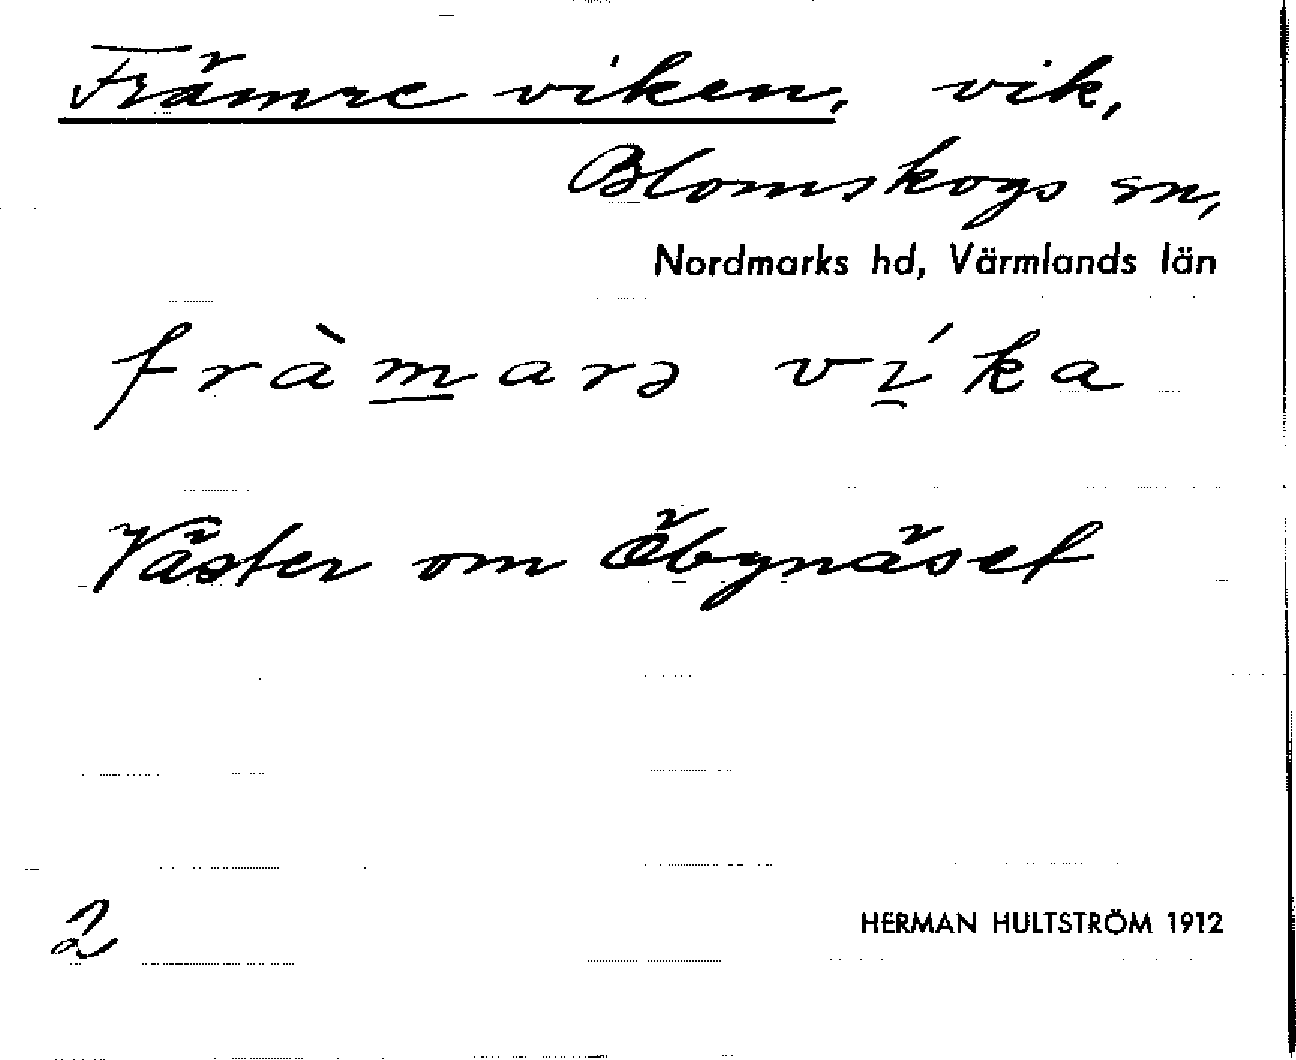 Främre viken, vik,
Blomskogs sn,
Nordmarks hd, Värmlands län
fràmarə víka
Väster om Öbynäset
2
HERMAN HULTSTRÖM 1912